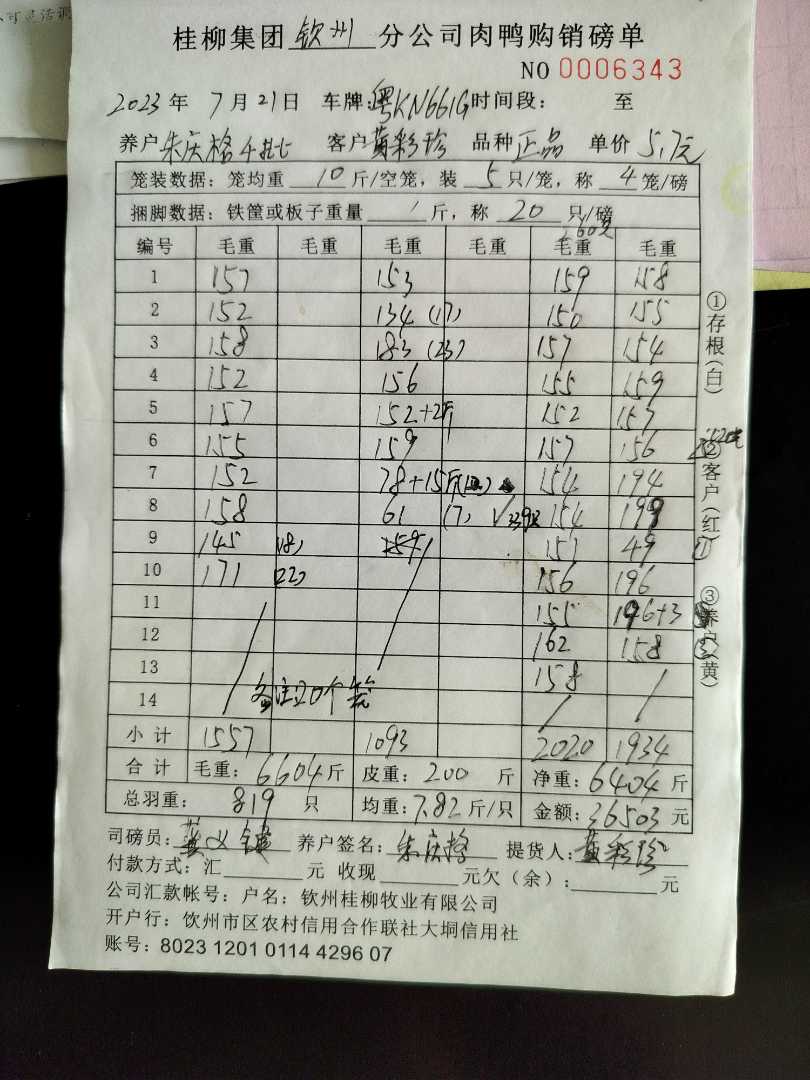 不可灵活调
桂柳集团 钦州 分公司肉鸭购销磅单
NO 0006343
2023 年 7 月 21 日 车牌:粤KN661G 时间段: 至
养户 朱庆格 客户 黄彩珍 品种 正品 单价 5.7元
笼装数据: 笼均重 10 斤/空笼, 装 5 只/笼, 称 4 笼/磅
捆脚数据: 铁筐或板子重量 / 斤, 称 20 只/磅
260只
编号 毛重 毛重 毛重 毛重 毛重 毛重
1 157 153 159 158
2 152 134 (17) 150 155
3 158 183 (23) 157 154
4 152 156 155 159
5 157 152+2斤 152 157
6 155 159 157 156
7 152 78+15斤 154 194
8 158 61 (7) 154 199
9 145 (18) 159 157 49
10 171 (22) 156 196
11 155 196+3
12 162 158
13 158
14 备注:20个笼
小计 1557 1093 2020 1934
合计 毛重: 6604 斤 皮重: 200 斤 净重: 6404 斤
总羽重: 819 只 均重: 7.82 斤/只 金额: 36503 元
司磅员: 养户签名: 朱庆格 提货人: 黄彩珍
付款方式: 汇 元 收现 元欠(余): 元
公司汇款帐号: 户名: 钦州桂柳牧业有限公司
开户行: 钦州市区农村信用合作联社大垌信用社
账号: 8023 1201 0114 4296 07
①存根(白)
②客户(红)
③养户(黄)